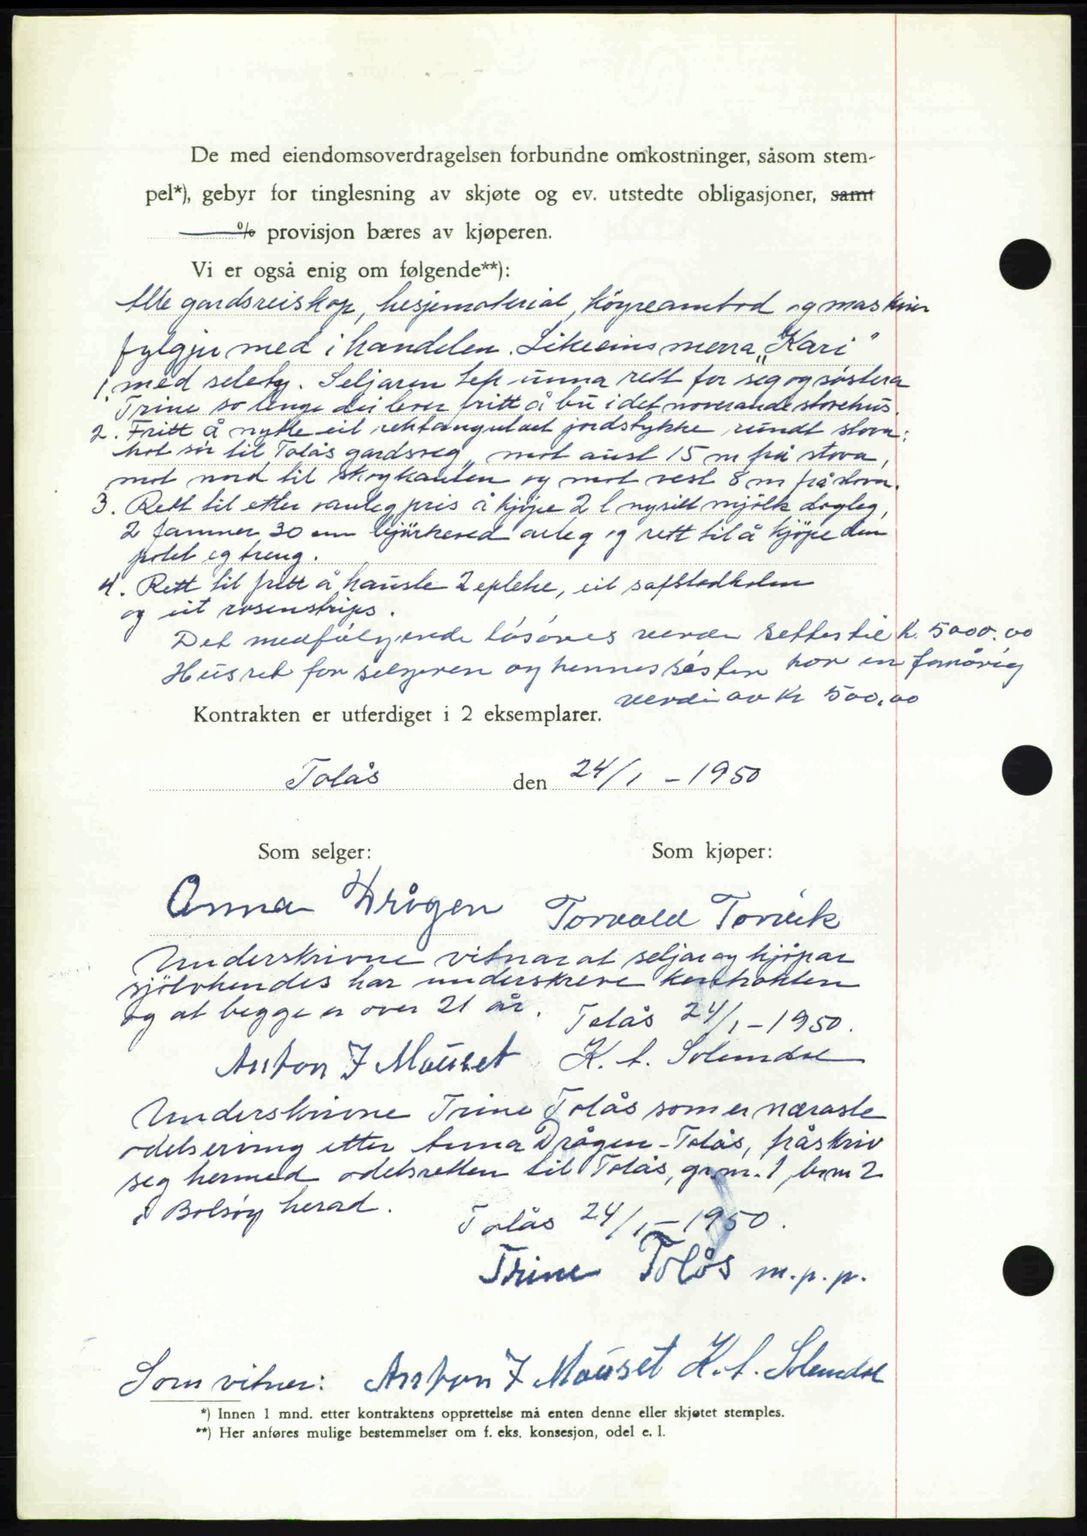 De med eiendomsoverdragelsen forbundne omkostninger, såsom stem-
pel*), gebyr for tinglesning av skjøte og ev. utstedte obligasjoner, samt
% provisjon bæres av kjøperen.
Vi er også enig om følgende**):
Alle gardsreiskap, hesjematerial, köyreambod og maskiner
fylgju med i handelen. Likeeins merra „Kari"
1. med seletøy. Seljaren tek unna rett for seg og søstera
Trine so lenge dei lever fritt å bu i det noverande storehus.
2. Fritt å nytte eit rektangulært jordstykke rundt stova:
mot sør til Tolås gardsveg, mot aust 15 m frå stova,
mot nord til skogkanten og mot vest 8 m frå stova.
3. Rett til etter vanleg pris å kjøpe 2 l nysilt mjölk dagleg,
2 famner 30 cm bjürkeved årleg og rett til å kjøpe den
potet eg treng.
4. Rett til fritt å hauste 2 epletre, eit
og eit
Det medfølgende løsøres verdi settes til kr. 5000.00
Husrett for selgeren og hennes søster har en femårig
verdi av kr 500,00
Kontrakten er utferdiget i 2 eksemplarer.
Tolås den 24/1 - 1950
Som selger: Som kjøper:
Anna Drågen Torvald Torvik
Underskrivne vitnar at seljar og kjöpar
sjölvhendes har underskreve kontrakten
og at begge er over 21 år. Tolås 24/1 - 1950.
Anton J Mauset K. A. Solemdal
Underskrivne Trine Tolås som er næraste
odelserving etter Anna Drågen - Tolås, fråskriv
seg hermed odelsretten til Tolås, gr.nr. 1, br.nr 2
i Bolsøy herad. Tolås 24/1 - 1950.
Trine Tolås m.p.p.
Som vitner: Anton J Mauset K. A. Solemdal
*) Innen 1 mnd. etter kontraktens opprettelse må enten denne eller skjøtet stemples.
**) Her anføres mulige bestemmelser om f. eks. konsesjon, odel e. l.